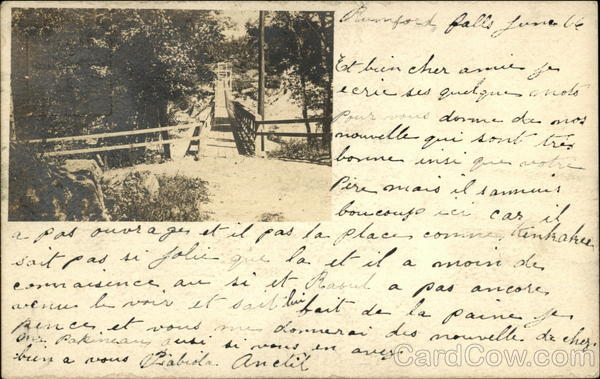 Rumford falls June 16
Et bien cher amie je
ecrie ses quelque mots
pour vous donne de nos
nouvelle qui sont très
bonne insi que votre
Père mais il sannuis
boucoup ici car il
a pas ouvrages et il pas la place comme Kankakee
sait pas si jolie que la et il a moin de
connaisence au si et Raoul a pas ancore
venu le voir et sait lui fait de la paine je
pence et vous me donnerai des nouvelle de cher
Mr ausi si vous en avez
bien a vous Fabiola Anctil
CardCow.com